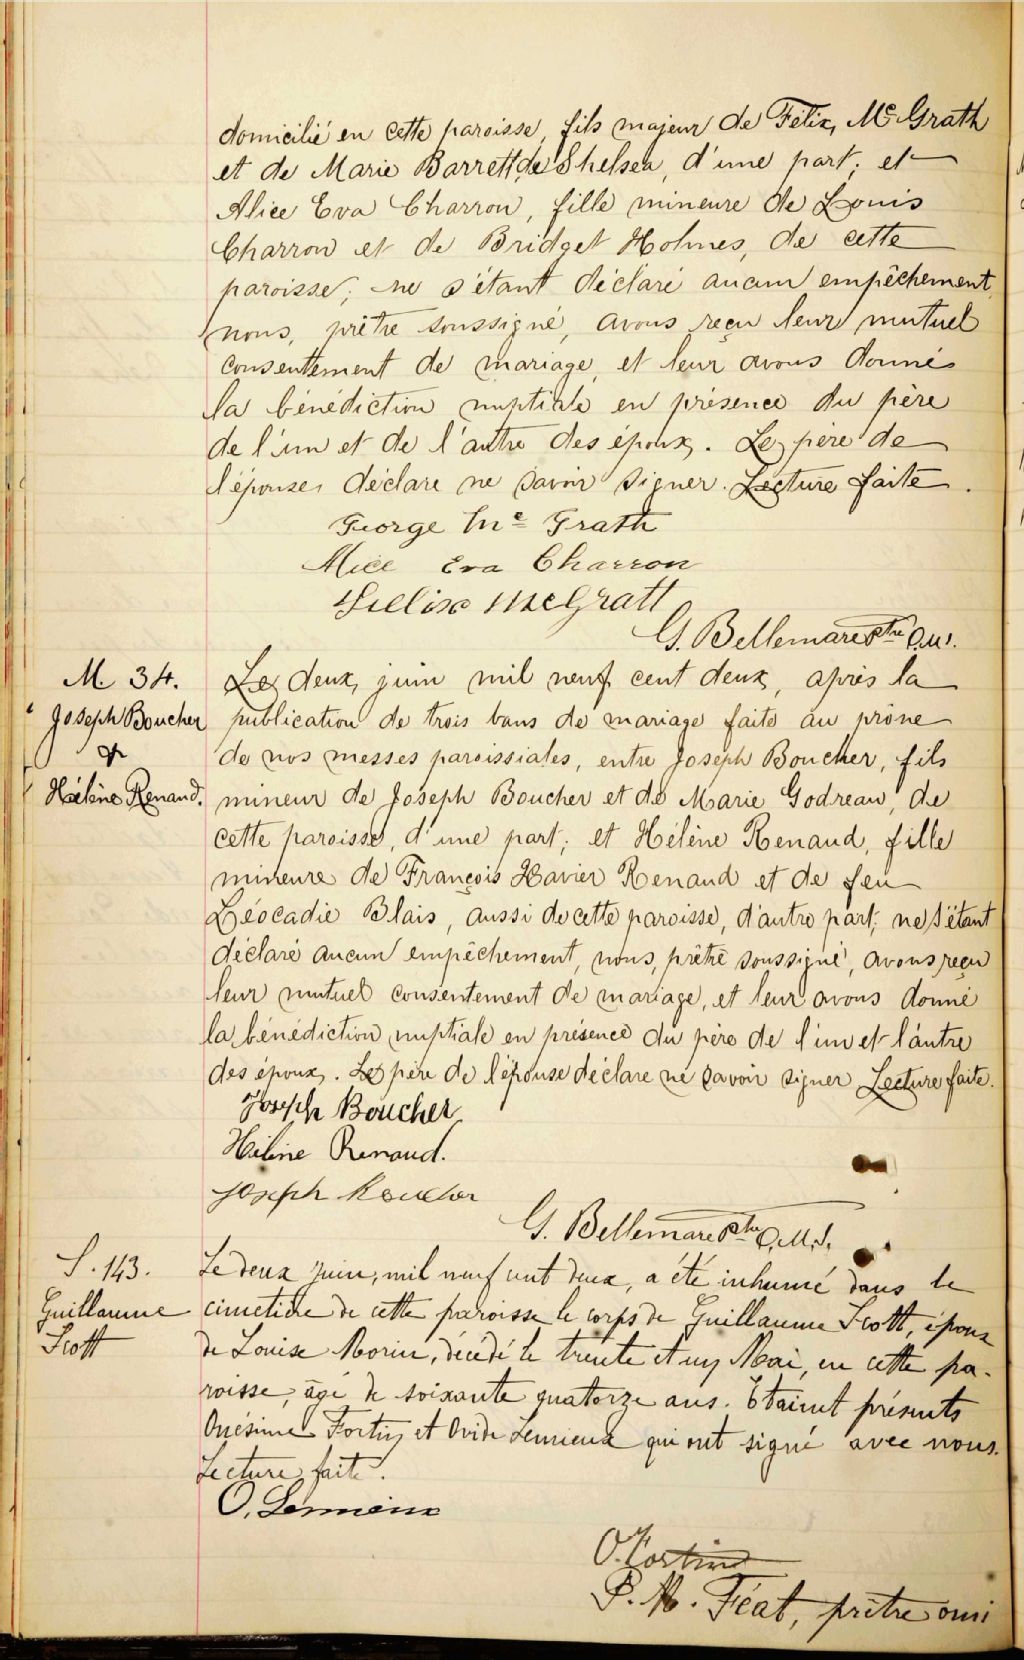 domicilié en cette paroisse, fils majeur de Félix, Mc Grath
et de Marie Barrett, de Shelsea, d'une part; et
Alice Eva Charron, fille mineure de Louis
Charron et de Bridget Holmes, de cette
paroisse; ne s'étant déclaré aucun empêchement,
nous, prêtre soussigné, avons reçu leur mutuel
consentement de mariage, et leur avons donné
la bénédiction nuptiale en présence du père
de l'un et de l'autre des époux. Le père de
l'épouse déclare ne savoir signer. Lecture faite.
George Mc Grath
Alice Eva Charron
Fellix McGratt
G. Bellemare Ptre O.M.I.
M. 34.
Joseph Boucher
&
Hélène Renaud.
Le deux juin mil neuf cent deux, après la
publication de trois bans de mariage faite au prône
de nos messes paroissiales, entre Joseph Boucher, fils
mineur de Joseph Boucher et de Marie Godreau, de
cette paroisse, d'une part; et Hélène Renaud, fille
mineure de François Xavier Renaud et de feu
Léocadie Blais, aussi de cette paroisse, d'autre part; ne s'étant
déclaré aucun empêchement, nous, prêtre soussigné, avons reçu
leur mutuel consentement de mariage, et leur avons donné
la bénédiction nuptiale en présence du père de l'un et l'autre
des époux. Le père de l'épouse déclare ne savoir signer Lecture faite.
Joseph Boucher
Hélène Renaud.
Joseph Boucher
G. Bellemare Ptre O.M.I.
S. 143.
Guillaume
Scott
Le deux juin, mil neuf cent deux, a été inhumé dans le
cimetière de cette paroisse le corps de Guillaume Scott, époux
de Louise Morin, décédé le trente et un Mai, en cette pa-
roisse, âgé de soixante quatorze ans. Etaient présents
Onésime Fortin et Ovide Lemieux qui ont signé avec nous.
Lecture faite.
O. Lemieux
O. Fortin
P. M. Féat, prêtre omi